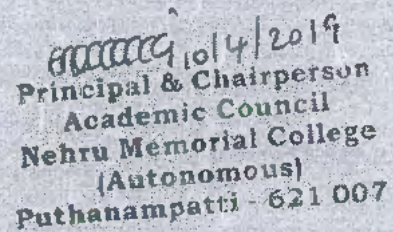 10/4/2019
Principal & Chairperson
Academic Council
Nehru Memorial College
(Autonomous)
Puthanampatti - 621 007